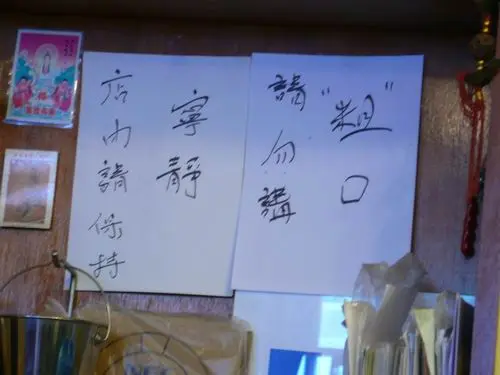 店內請保持
寧靜
請勿講
"粗"口